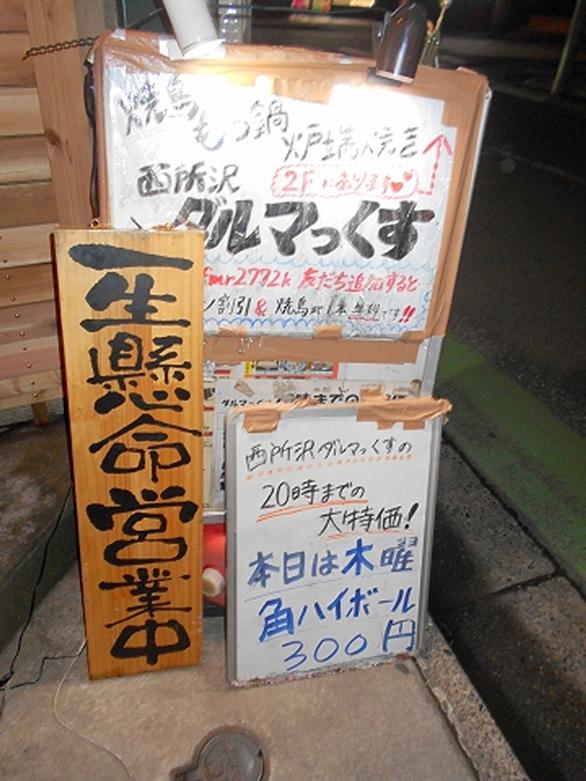 焼鳥もつ鍋
炉端べんき
西所沢
2Fにあります
ダルマっくす
2772k 友だち追加すると
割引&焼鳥が1本無料です!!
一生懸命営業中
までの
西所沢ダルマっくすの
20時までの
大特価!
本日は木曜
角ハイボール
300円